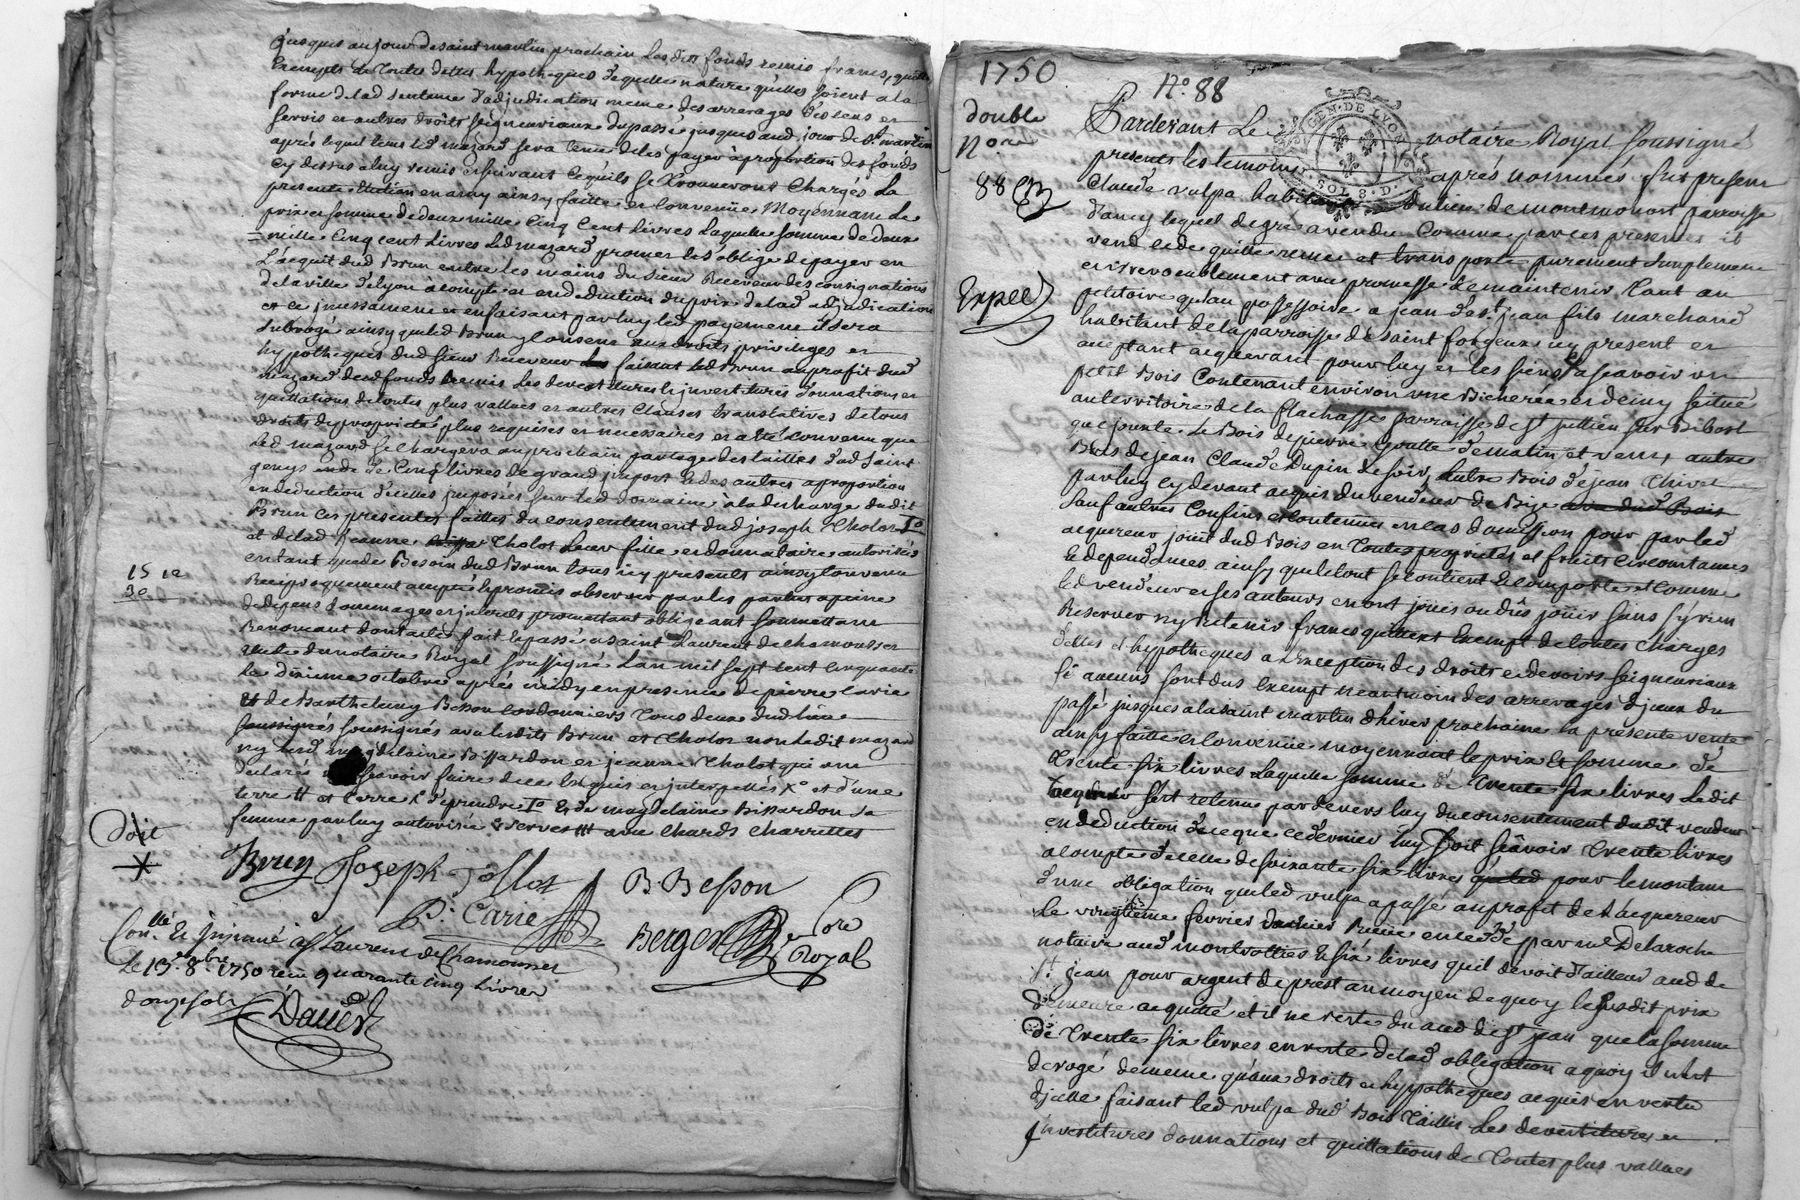 jusques au jour de saint martin prochain lesdits fonds remis francs, quittes
Exempts de toutes dettes hypotheques de quelle nature quelles soient a la
forme de lad sentence d'adjudication meme des arrerages des cens et
servis et autres droits seigneuriaux du passé jusques aud jour de st martin
après lequel tems led mazard sera tenu de les payer à proportion des fonds
cy dessus a luy remis et suivant cequils se trouveront chargés La
presente ainsy faitte et convenüe Moyennant le
prix et somme de deux mille cinq cent livres laquelle somme de deux
mille cinq cent livres led mazard promet et s'oblige de payer en
l'acquit dud Brun entre les mains du sieur Receveur des consignations
de la ville de lyon acompte et en deduction du prix de lad adjudication
et ce incessament et en faisant par luy led payement il sera
subrogé ainsy que led Brun y consent aux droits privileges et
hypotheques dud sieur Receveur faisant led Brun au profit dud
mazard desd fonds remis les devestitures investitures donnations et
quittations de toutes plus vallues et autres clauses translatives de tous
droits de proprieté plus requises et necessaires et a été convenu que
led mazard se chargera au prochain partage des tailles dud saint
genys de cinq livres de grand impost et des autres a proportion
en deduction d'icelles imposées sur led domaine à la decharge dudit
Brun ces presentes faittes du consentement dud joseph Cholot Io
et de lad jeanne Cholot leur fille et donnataire autorisés
en tant que de Besoin dud Brun tous icy presents ainsy convenu
Reciproquement accepté et promis observer par les parties a peine
de depens dommages et interets promettant obligeant soumettant
Renonceant dont acte fait et passé a saint Laurent de chamousset
etude du notaire Royal soussigné L'an mil sept cent cinquante
le dixieme octobre après midy en presence de pierre carie
et de Barthelemy Besson cordonniers tous deux dud lieu
soussignés avec lesdits Brun et Cholot non ledit mazard
ny lesd magdelaine Bissardon et jeanne Cholot qui ont
declarés scavoir faire de ce enquis et interpellés Xo et d'une
terre # et terre d'eprendre Io et de magdelaine Bissardon sa
femme par luy autorisée avec chards charrettes
15 12
30
doit
Brun Joseph Jollot B Besson
P. Carie
Berger Nore Royal
Conllé et insinué a St Laurent de Chamousset
Le 13e 8bre 1750 reçu quarante cinq livres
douze sols
Dauer
1750
No. 88
double
No.re
88
Expeé
GEN. DE LYON
SOLS. D.
Pardevant Le notaire Royal soussigné
presents les temoins après nommés fut present
Claude vulpa habitant du lieu de montmonost parroisse
d'ancy lequel de gré a vendu comme par ces presentes il
vend cede quitte remet et transporte purement simplement
et irrevocablement avec promesse de maintenir tant au
petitoire qu'au possessoire a jean de st jean fils marchand
habitant de la parroisse de saint forgeux icy present et
acceptant acquerant pour luy et les siens a scavoir un
petit Bois Contenant environ une Bicherée et demy scitué
au territoire de la flachasse parroisse de st jullien sur Bibost
que jouxte Le Bois de pierre goutte de matin et vent, autre
Bois de jean Claude Dupin de soir, autre Bois de jean Chivet
par luy cy devant acquis du vendeur de Bize
sauf autres Confins et contenue en cas d'omission pour par led
acquereur jouir dud Bois en toutes proprietés et fruits circonstances
et dependances ainsy que le tout se contient et comporte et comme
led vendeur et ses auteurs en ont joüis ou dûs joüir sans s'y rien
Reserver ny Retenir franc quittes Exempt de toutes charges
dettes et hypotheques a L'exception des droits et devoirs seigneuriaux
si aucuns sont dus exempt neantmoin des arrerages d'jceux du
passé jusques a la saint martin d'hiver prochaine la presente vente
ainsy faitte et convenüe moyennant le prix et somme de
trente six livres laquelle somme de trente six livres ledit
acquereur s'est retenue pardevers luy du consentement dudit vendeur
en deduction de ce que ce dernier luy doit sçavoir trente livres
acompte d'icelle de soixante six livres pour le montant
d'une obligation que led vulpa a passé au profit de L'acquereur
le vingtieme fevrier dernier Receüe en led par me Delaroche
notaire aud montrottier et six livres quil devoit d'ailleur aud de
st. jean pour argent de prest au moyen de quoy le susdit prix
demeure acquitté et il ne reste du aud de st jean que la somme
de trente six livres en reste de lad obligation a quoy il n'est
derogé de meme qu'aux droits et hypotheques acquis en vertu
d'jcelle faisant led vulpa dud Bois taillis les devestitures et
investitures donnations et quittations de toutes plus vallues